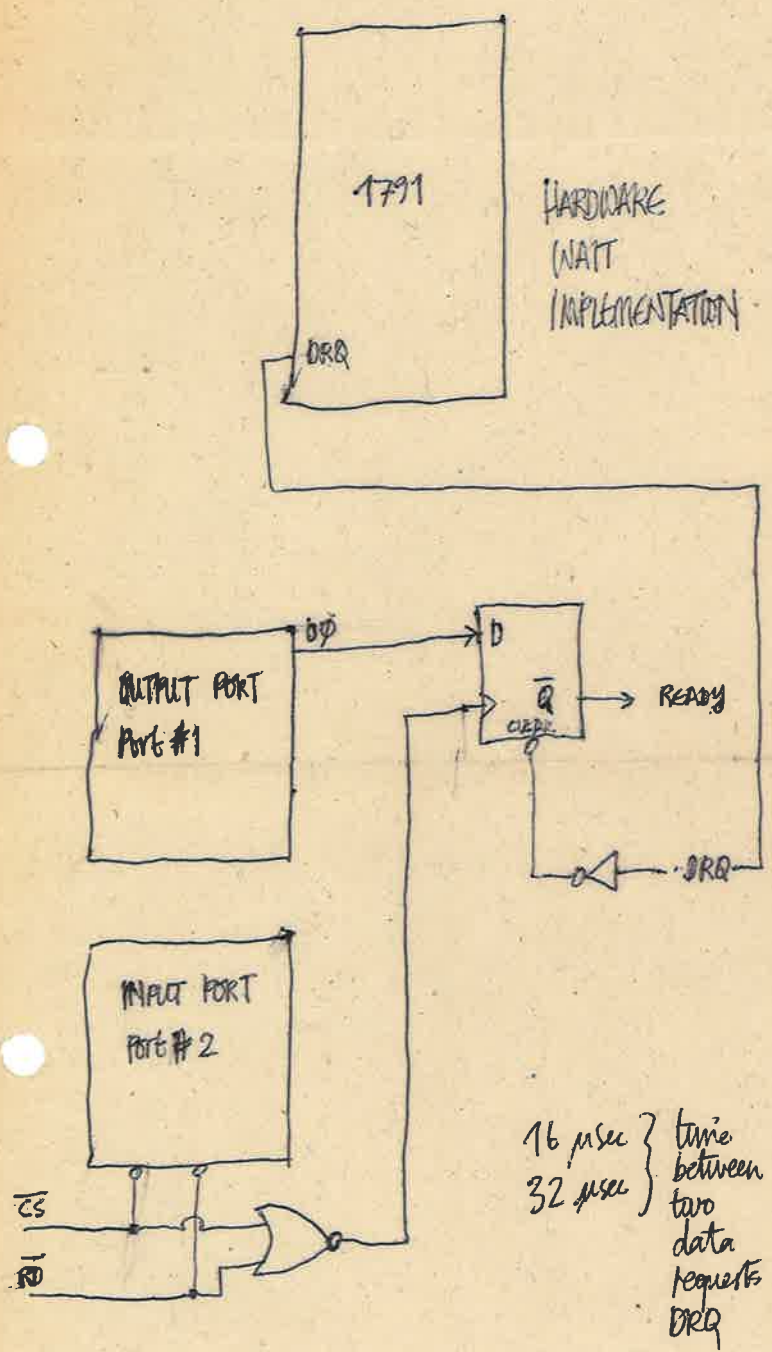 1791
HARDWARE
WAIT
IMPLEMENTATION
DRQ
OUTPUT PORT
Port #1
DØ
D
Q̅
CLEAR
READY
DRQ
INPUT PORT
Port # 2
C̅S̅
R̅D̅
16 µsec } time
32 µsec } between
two
data
requests
DRQ